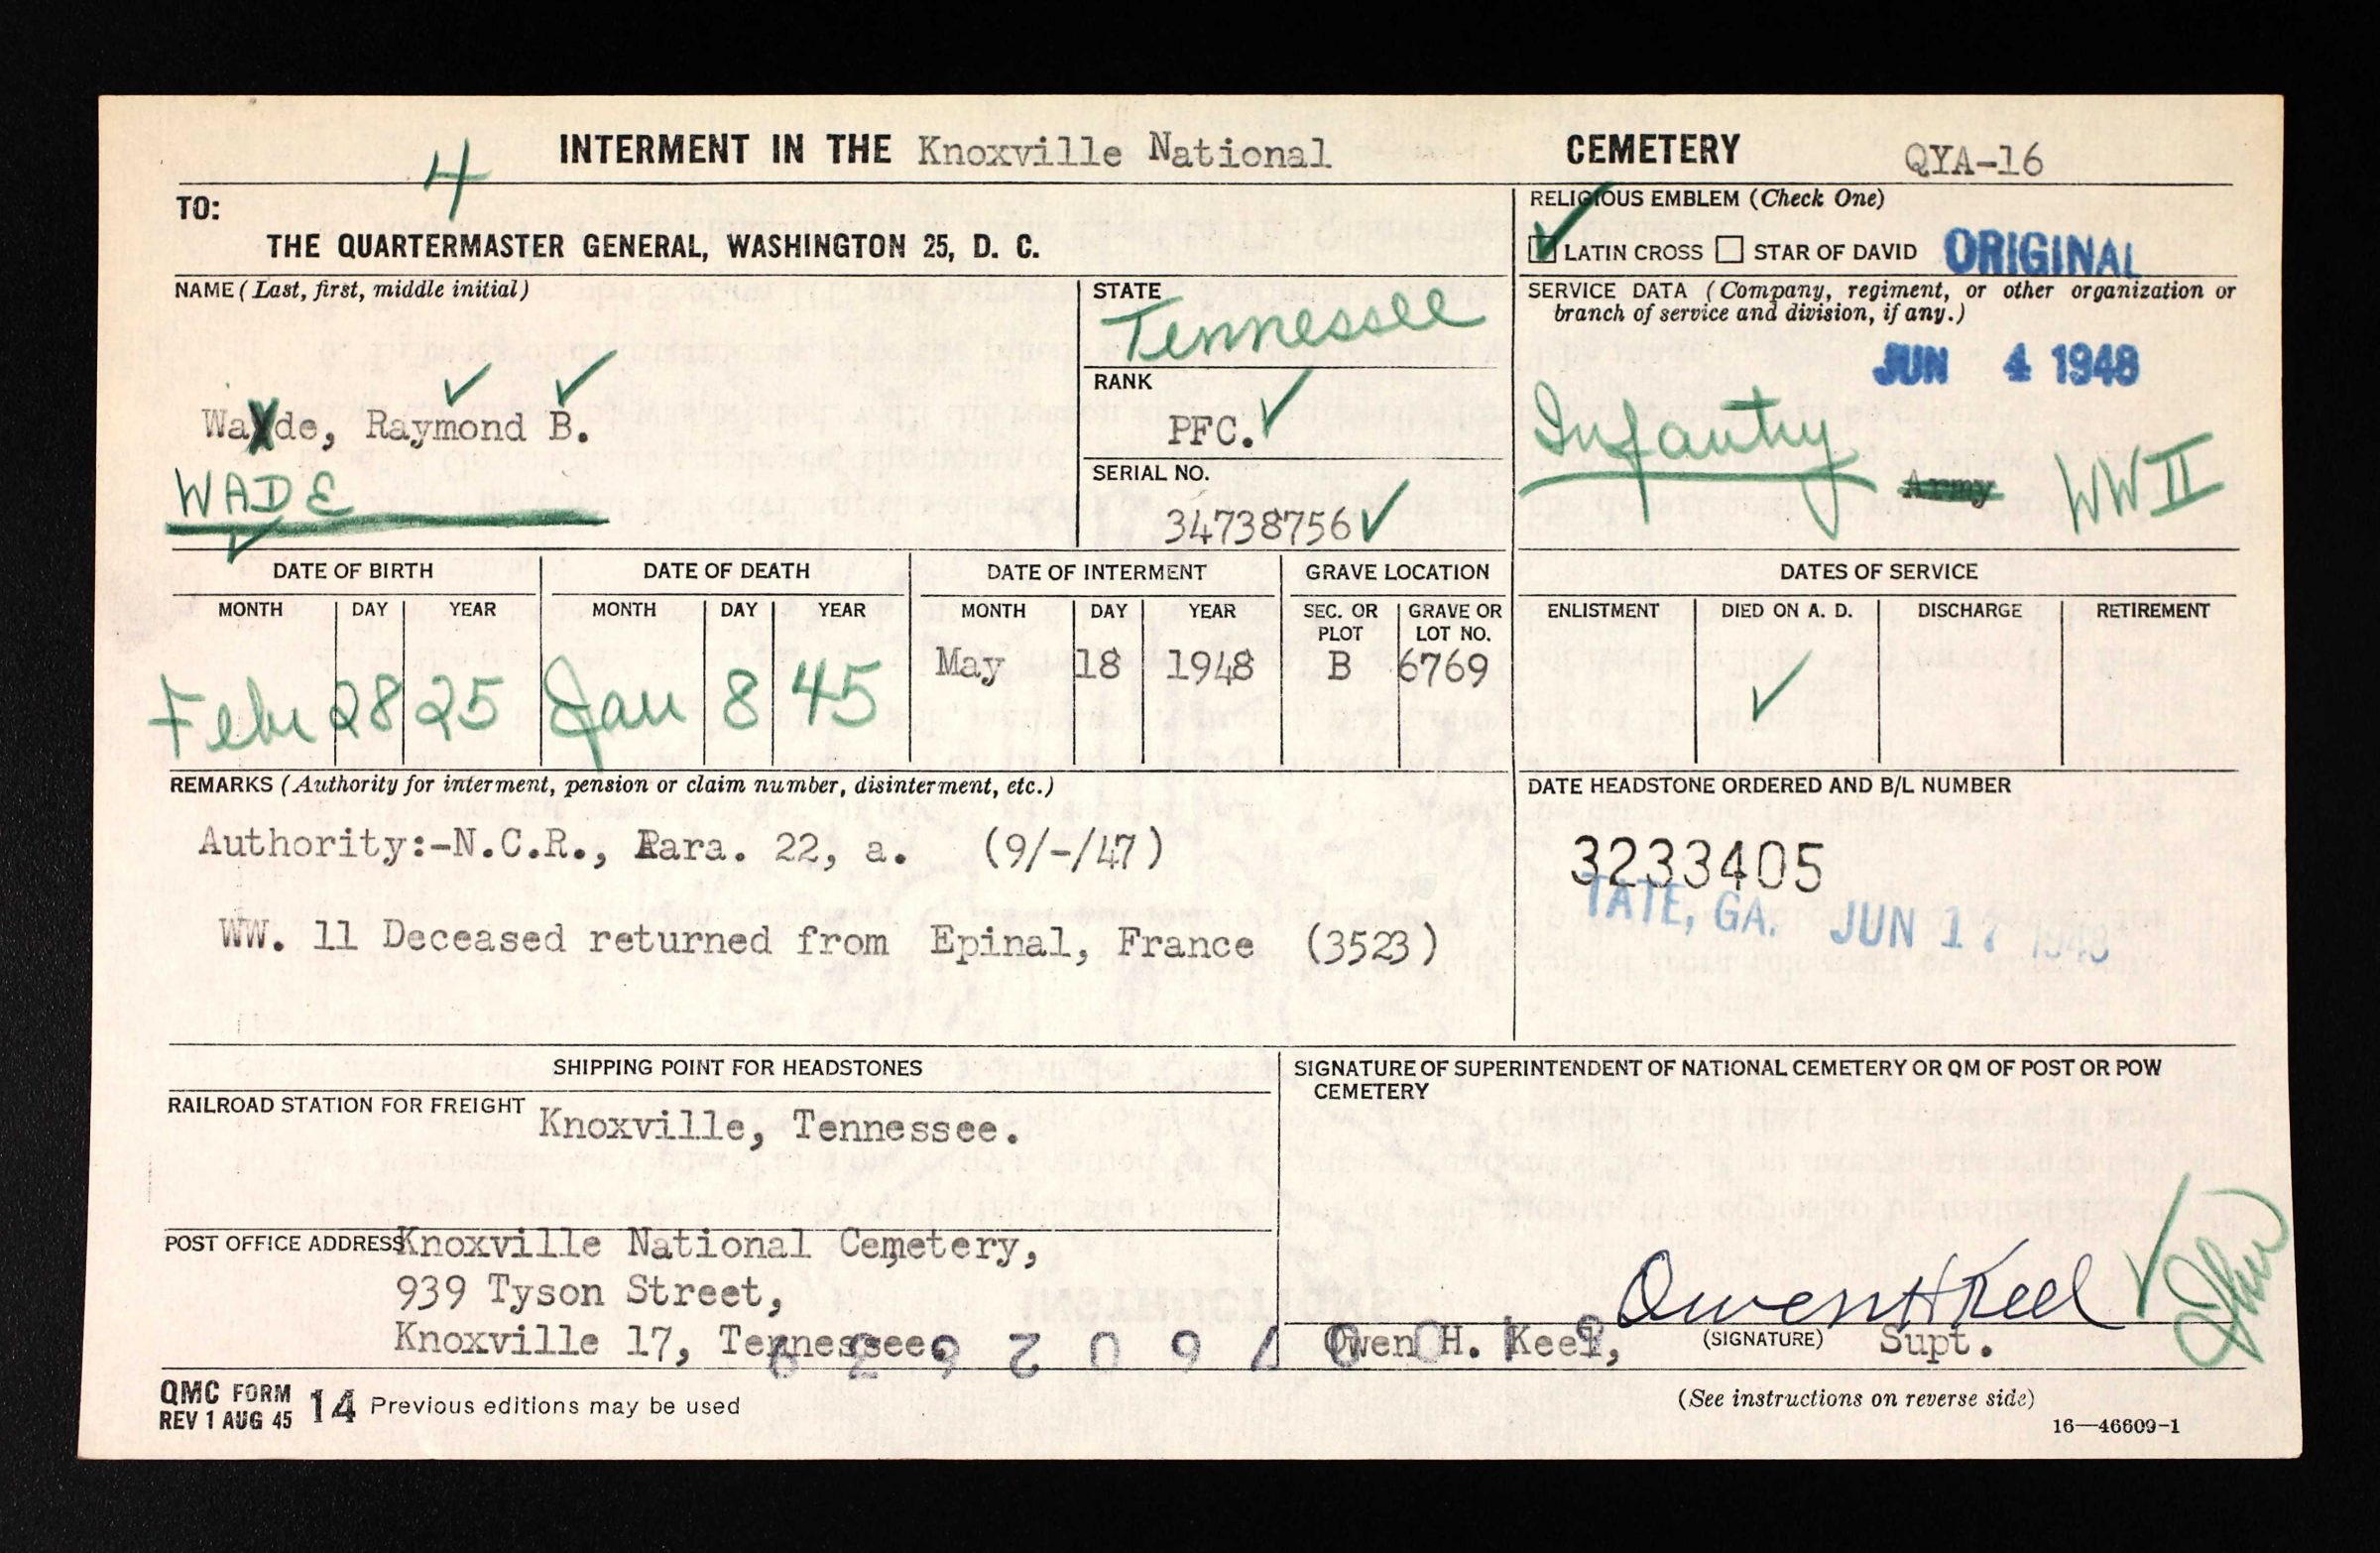 INTERMENT IN THE Knoxville National CEMETERY QYA-16
4
TO:
THE QUARTERMASTER GENERAL, WASHINGTON 25, D. C.
RELIGIOUS EMBLEM (Check One)
LATIN CROSS STAR OF DAVID ORIGINAL
NAME (Last, first, middle initial)
Wade, Raymond B.
WADE
STATE
Tennessee
RANK
PFC.
SERIAL NO.
34738756
SERVICE DATA (Company, regiment, or other organization or
branch of service and division, if any.)
JUN 4 1948
Infantry Army WW II
DATE OF BIRTH DATE OF DEATH DATE OF INTERMENT GRAVE LOCATION DATES OF SERVICE
MONTH DAY YEAR MONTH DAY YEAR MONTH DAY YEAR SEC. OR PLOT GRAVE OR LOT NO. ENLISTMENT DIED ON A. D. DISCHARGE RETIREMENT
Feb 28 25 Jan 8 45 May 18 1948 B 6769
REMARKS (Authority for interment, pension or claim number, disinterment, etc.)
Authority:-N.C.R., Para. 22, a. (9/-/47)
WW. 11 Deceased returned from Epinal, France (3523)
DATE HEADSTONE ORDERED AND B/L NUMBER
3233405
TATE, GA. JUN 17 1948
SHIPPING POINT FOR HEADSTONES
RAILROAD STATION FOR FREIGHT Knoxville, Tennessee.
POST OFFICE ADDRESS Knoxville National Cemetery,
939 Tyson Street,
Knoxville 17, Tennessee.
SIGNATURE OF SUPERINTENDENT OF NATIONAL CEMETERY OR QM OF POST OR POW
CEMETERY
Owen H Keel
Owen H. Keel, (SIGNATURE) Supt.
QMC FORM 14 Previous editions may be used
REV 1 AUG 45
(See instructions on reverse side)
16—46609-1